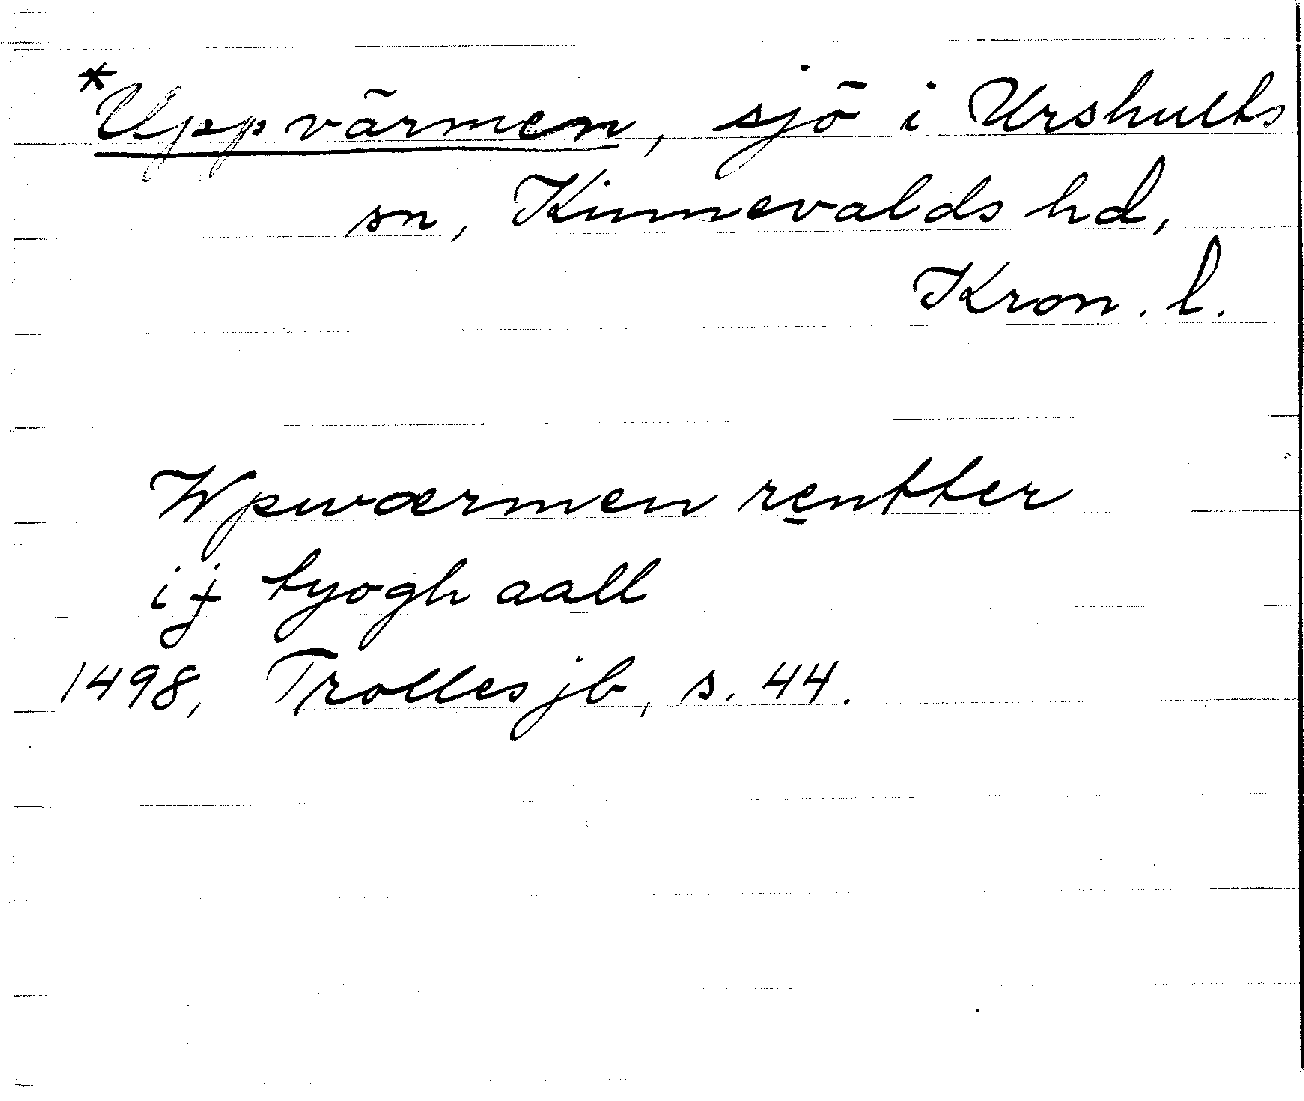 *Uppvärmen, sjö i Urshults
sn, Kinnevalds hd,
Kron. l.
Wpwærmen rentter
ij tyogh aall
1498, Trolles jb, s. 44.